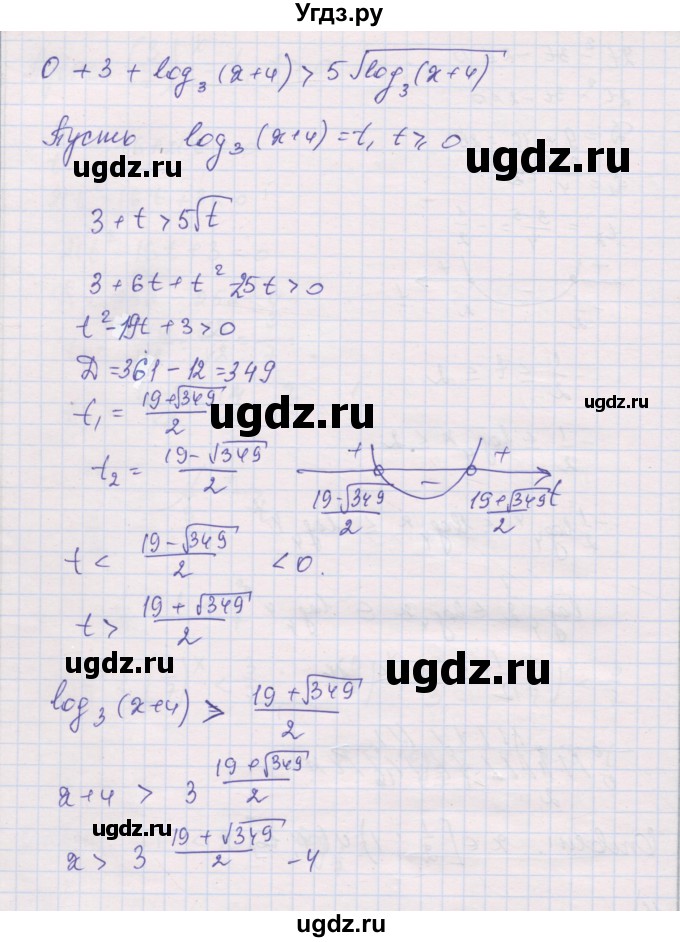 Угдз.ру
0 + 3 + log₃(x+4) > 5√log₃(x+4)
Пусть log₃(x+4) = t, t ≥ 0
ugdz.ru ugdz.ru
3 + t > 5√t
3 + 6t + t² - 25t > 0
t² - 19t + 3 > 0
D = 361 - 12 = 349
t₁ = (19+√349)/2
ugdz.ru ugdz.ru
t₂ = (19-√349)/2
+ - +
(19-√349)/2 (19+√349)/2 t
ugdz.ru
t < (19-√349)/2 < 0.
t > (19+√349)/2
ugdz.ru ugdz.ru
log₃(x+4) > (19+√349)/2
x+4 > 3^((19+√349)/2)
ugdz.ru
x > 3^((19+√349)/2) - 4
ugdz.ru